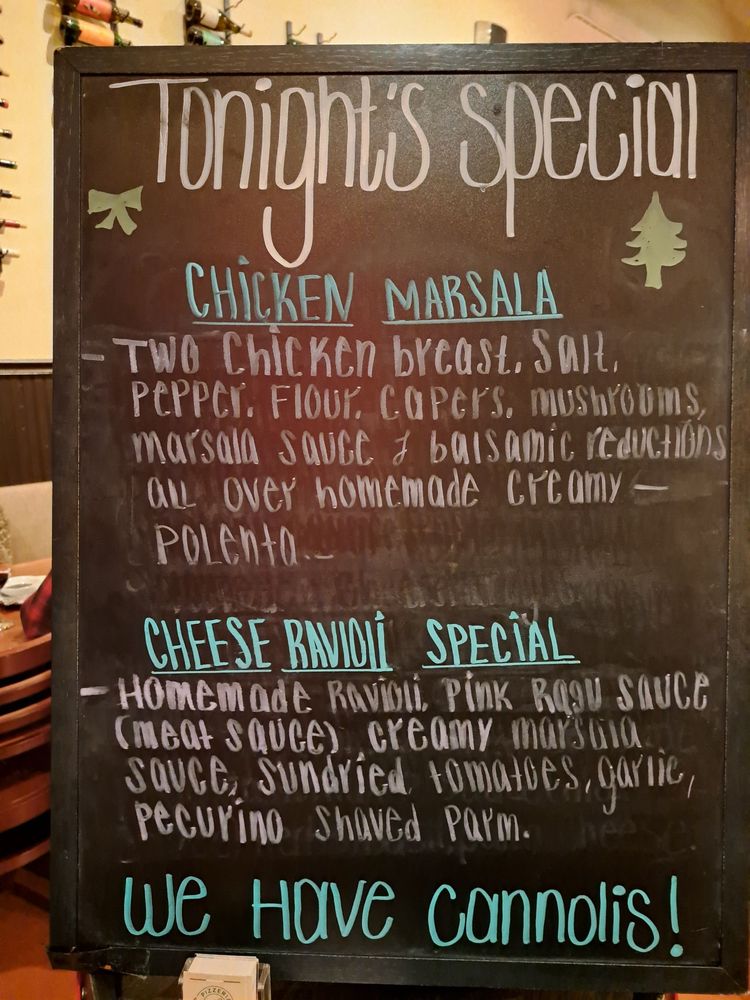 Tonight's Special
CHiCKEN MARSALA
- TWO Chicken breast, Salt,
PEPPER, Flour, CAPERS, mushrooms,
marsala sauce & balsamic reductions
all over homemade creamy -
POLENTA...
CHEESE RAVIOLI SPECiAL
- HOMEMADE RAVIOLI, PINK RAGU SAUCE
(meat sauce) creamy marsala
sauce, sundried tomatoes, garlic,
PECURINO Shaved PARM.
We HAVE cannolis!
PIZZERI